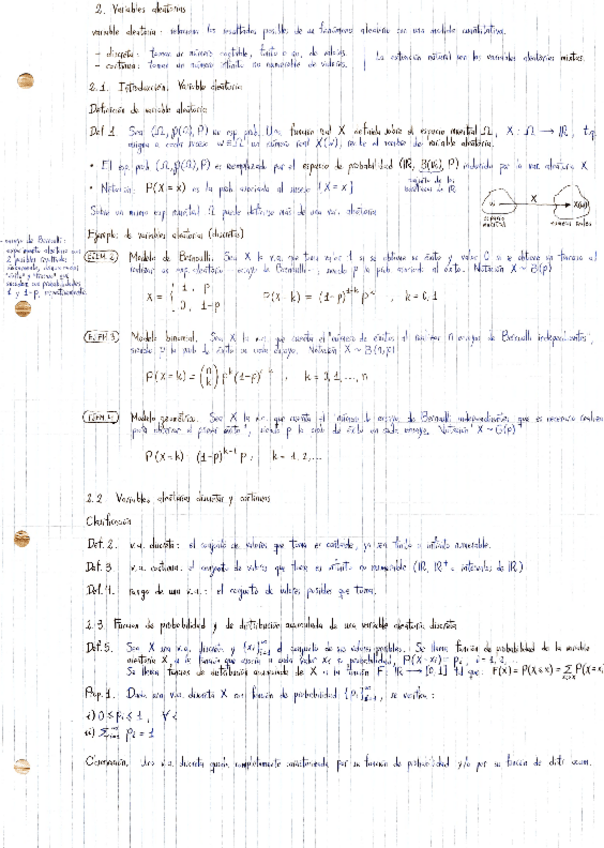 2. Variables aleatorias
variable aleatoria: relaciona los resultados posibles de un fenómeno aleatorio con una medida cuantitativa.
- discreta: toman un número contable, finito o no, de valores.
- continua: toman un número infinito no numerable de valores.
La extensión natural son las variables aleatorias mixtas.
2.1. Introducción. Variable aleatoria
Definición de variable aleatoria
Def 1. Sea (Ω, P(Ω), P) un esp. prob. Una función real X definida sobre el espacio muestral Ω, X: Ω → ℝ, que
asigna a cada suceso w∈Ω un número real X(w), recibe el nombre de variable aleatoria.
• El esp. prob (Ω, P(Ω), P) es reemplazado por el espacio de probabilidad (ℝ, B(ℝ), P) inducido por la var. aleatoria X.
• Notación: P(X = x) es la prob asociada al suceso {X = x}
X
w
X(w)
espacio
muestral
números reales
Sobre un mismo esp. muestral Ω puede definirse más de una var. aleatoria
Ejemplos de variables aleatorias (discretas)
- ensayo de Bernoulli:
experimento aleatorio con
2 posibles resultados
"éxito" y "fracaso" que
1 y 1-p, respectivamente
EJEM 2 Modelo de Bernoulli. Sea X la v.a. que toma valor 1 si se obtiene un éxito y valor 0 si se obtiene un fracaso al
realizar un exp. aleatorio - ensayo de Bernoulli -, siendo p la prob asociada al éxito. Notación X ~ B(p)
X = { 1, p
0, 1-p
P(X=k) = (1-p)^{1-k} p^k , k = 0, 1
EJEM 3 Modelo binomial. Sea X la v.a. que cuenta el "número de éxitos al realizar n ensayos de Bernoulli independientes",
siendo p la prob. de éxito en cada ensayo. Notación X ~ B(n,p)
P(X=k) = (n k) p^k (1-p)^{n-k} , k = 0, 1, ..., n
EJEM 4 Modelo geométrico. Sea X la v.a. que cuenta el "número de ensayos de Bernoulli independientes, que es necesario realizar
para obtener el primer éxito", siendo p la prob de éxito en cada ensayo. Notación X ~ G(p)
P(X=k) = (1-p)^{k-1} p , k = 1, 2, ...
2.2. Variables aleatorias discretas y continuas
Clasificación
Def. 2. v.a. discreta: el conjunto de valores que toma es contable, ya sea finito o infinito numerable.
Def. 3 v.a. continua: el conjunto de valores que toma es infinito no numerable (ℝ, ℝ⁺ o intervalos de ℝ)
Def. 4. rango de una v.a.: el conjunto de valores posibles que toma.
2.3. Función de probabilidad y de distribución acumulada de una variable aleatoria discreta
Def. 5. Sea X una v.a. discreta y {xi}∞i=1 el conjunto de sus valores posibles. Se llama función de probabilidad de la variable
aleatoria X, a la función que asocia a cada valor xi su probabilidad, P(X=xi) = pi, i = 1, 2, ...
Se llama función de distribución acumulada de X a la función F: ℝ → [0,1] tal que: F(x) = P(X≤x) = Σ P(X=xi)
Prop. 1. Dada una v.a. discreta X con función de probabilidad {pi}∞i=1, se verifica:
i) 0 ≤ pi ≤ 1, ∀i
ii) Σ∞i=1 pi = 1
Observación. Una v.a. discreta queda completamente caracterizada por su función de probabilidad y/o por su función de distr. acum.